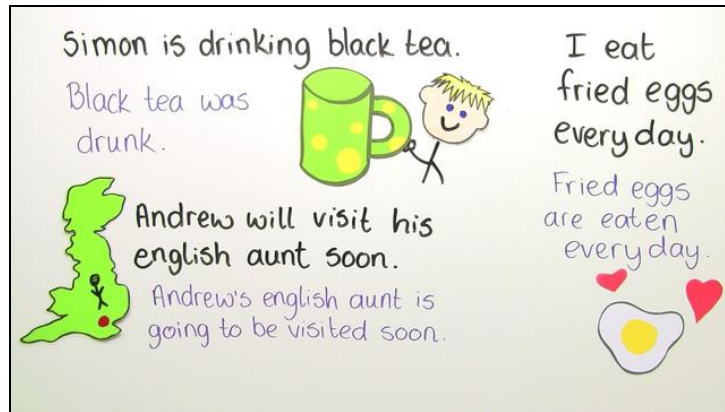 Simon is drinking black tea.
Black tea was
drunk.
Andrew will visit his
english aunt soon.
Andrew's english aunt is
going to be visited soon.
I eat
fried eggs
every day.
Fried eggs
are eaten
every day.